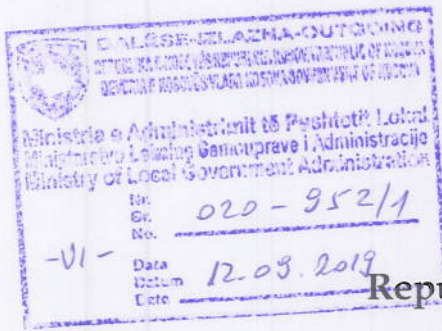 DALËSE-IZLAZNA-OUTGOING
Ministria e Administrimit të Pushtetit Lokal
Ministarstvo Lokalne Samouprave i Administracije
Ministry of Local Government Administration
Nr.
Br.
No. 020-952/1
-VI-
Data
Datum
Date 12.09.2019
Repu